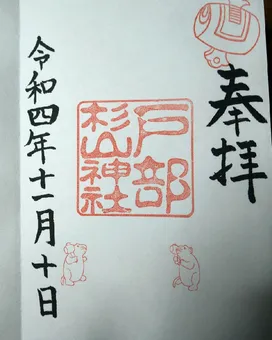 奉拝
戸部
杉山
神社
令和四年十一月十日